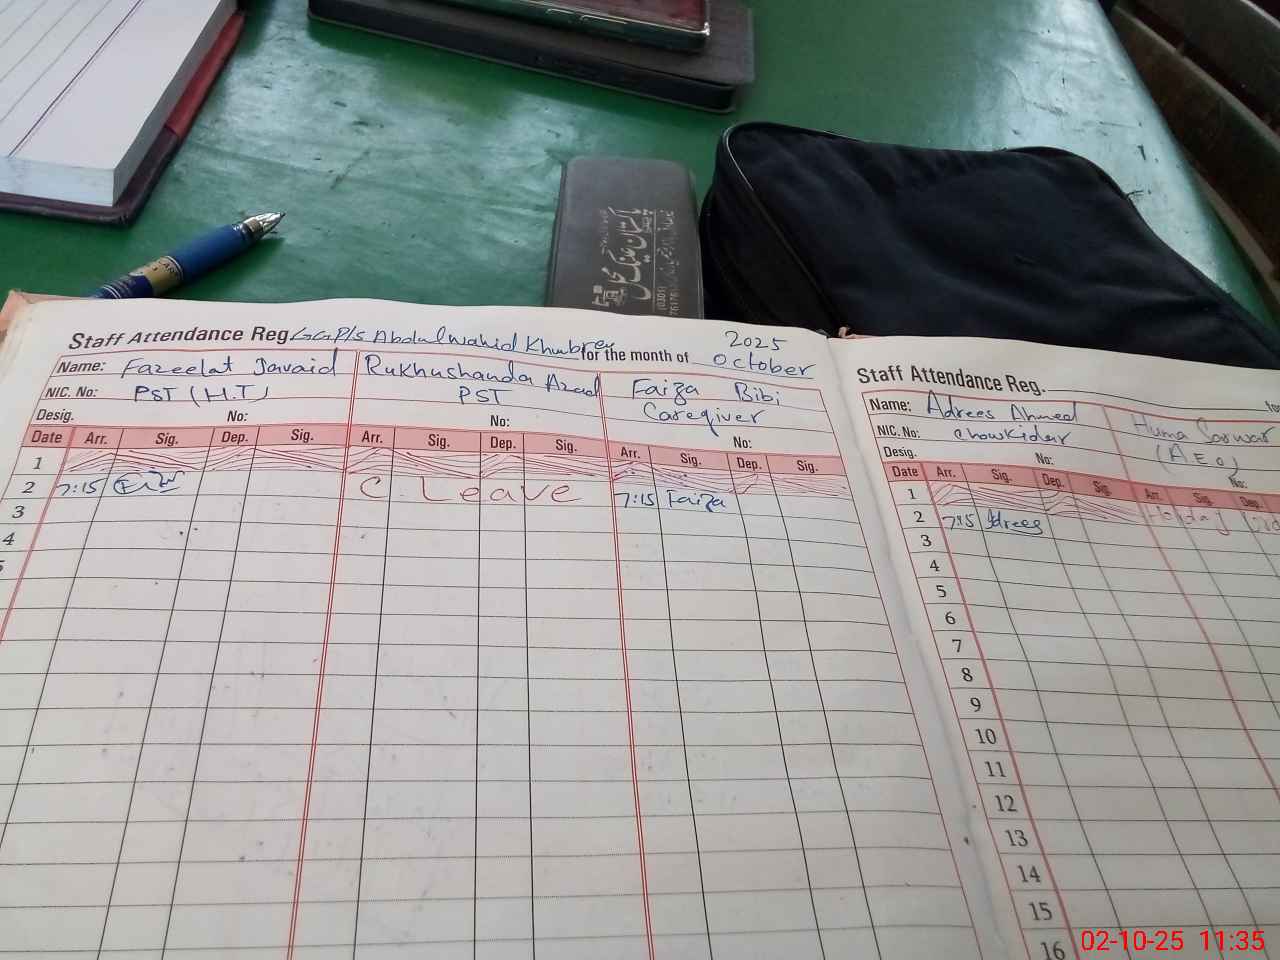 Staff Attendance Reg. GGP/S Abdul Wahid Khubrey for the month of October 2025
Name: Fazeelat Javaid Rukhushanda Azead Faiza Bibi
NIC. No: PST (H.T) PST Caregiver
Desig. No: No: No:
Date Arr. Sig. Dep. Sig. Arr. Sig. Dep. Sig. Arr. Sig. Dep. Sig.
1
2 7:15 C. Leave 7:15 Faiza
3
4
5
Staff Attendance Reg.
Name: Adrees Ahmed Huma Sarwar
NIC. No: Chowkidar (A.E.O)
Desig. No: No:
Date Arr. Sig. Dep. Sig. Arr. Sig. Dep.
1
2 7:15 Adrees
3
4
5
6
7
8
9
10
11
12
13
14
15
16
پاکستان
02-10-25 11:35